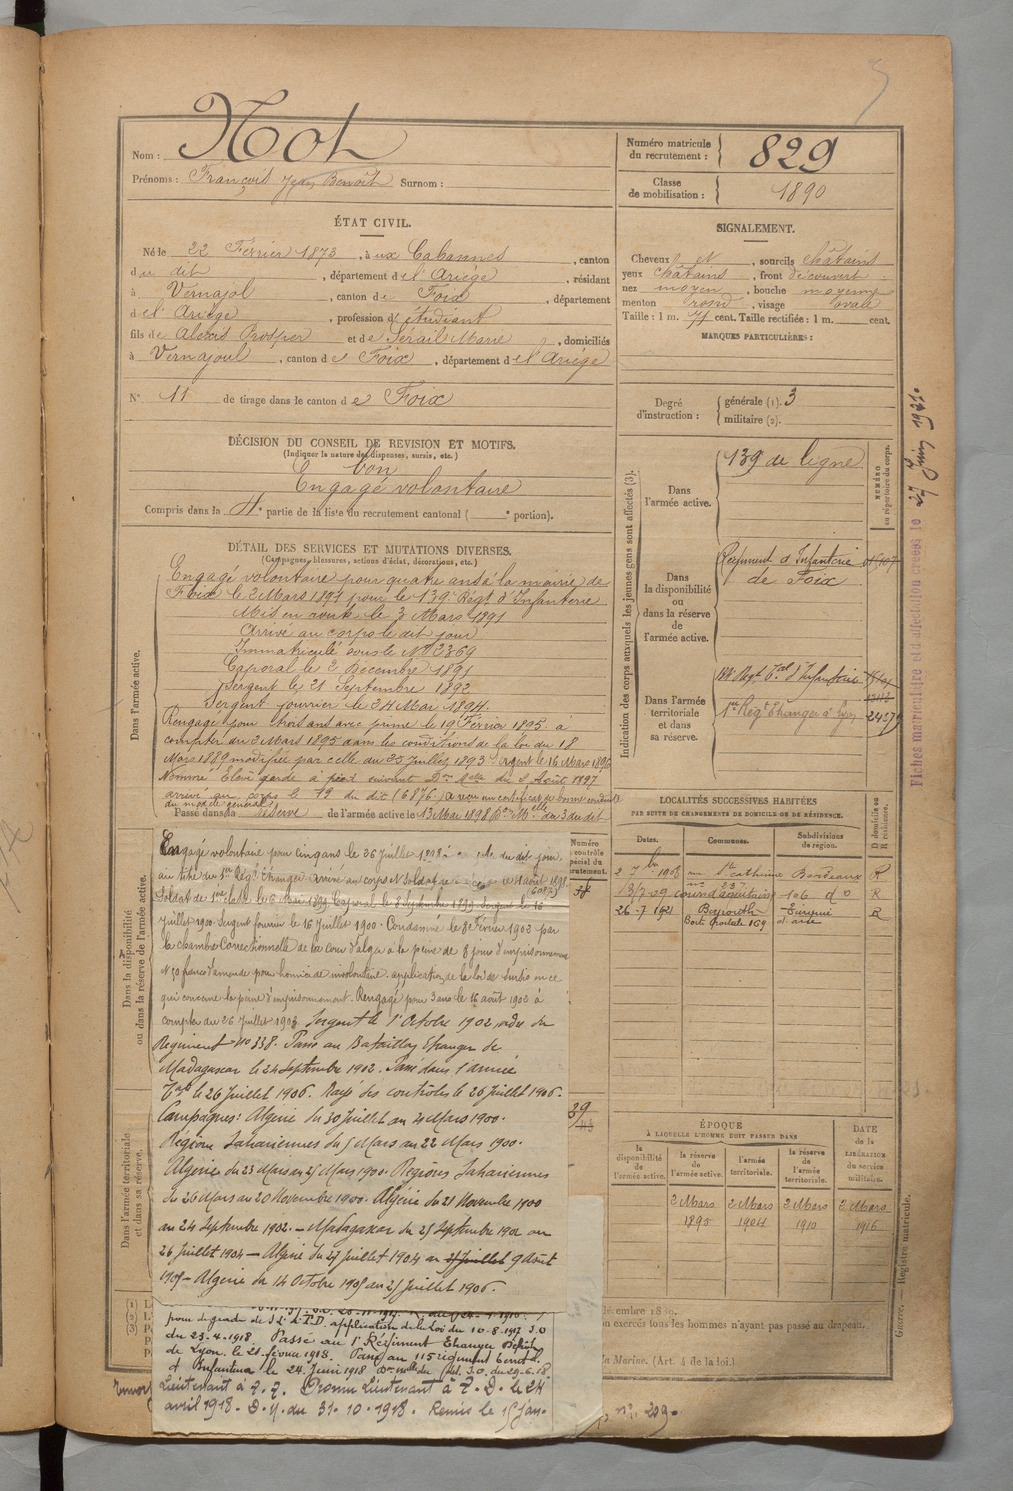 Nom : Not
Prénoms : François Jean Benoît Surnom :
Numéro matricule du recrutement : 829
Classe de mobilisation : 1890
ÉTAT CIVIL.
Né le 22 Février 1873, à ux Cabannes, canton
du dit, département de l'Ariège, résidant
à Vernajol, canton de Foix, département
de l'Ariège, profession d'étudiant
fils de Alexis Prosper et de Sérail Marie, domiciliés
à Vernajoul, canton de Foix, département de l'Ariège
N° 11 de tirage dans le canton de Foix
SIGNALEMENT.
Cheveux et, sourcils châtains
yeux châtains, front découvert
nez moyen, bouche moyenne
menton rond, visage ovale
Taille : 1 m. 77 cent. Taille rectifiée : 1 m. cent.
MARQUES PARTICULIÈRES :
DÉCISION DU CONSEIL DE REVISION ET MOTIFS.
(Indiquer la nature des dispenses, sursis, etc.)
bon
Engagé volontaire
Compris dans la 4e partie de la liste du recrutement cantonal ( e portion).
Degré d'instruction : générale (1). 3
militaire (2).
DÉTAIL DES SERVICES ET MUTATIONS DIVERSES.
(Campagnes, blessures, actions d'éclat, décorations, etc.)
Dans l'armée active.
Engagé volontaire pour quatre ans à la mairie de
Foix le 2 Mars 1891 pour le 139e Régt d'Infanterie
Mis en route le 3 Mars 1891
Arrivé au corps le dit jour
Immatriculé sous le N° 2369
Caporal le 2 Décembre 1891
Sergent le 21 Septembre 1892
Sergent fourrier le 24 Mai 1894.
Rengagé pour trois ans avec prime le 19 Février 1895 à
compter du 2 Mars 1895 dans les conditions de la loi du 18
Mars 1889 modifiée par celle du 25 juillet 1893 Sergent le 16 Mars 1896
Nommé Elève garde à pied suivant Don Mlle du 8 Août 1897
arrivé au corps le 19 du dit (6876) a reçu un certificat de bonne conduite
Passé dans la réserve de l'armée active le 13 Mai 1898
Indication des corps auxquels les jeunes gens sont affectés (3).
NUMÉRO au répertoire du corps.
Dans l'armée active.
139 de ligne
Dans la disponibilité ou dans la réserve de l'armée active.
Régiment d'Infanterie
de Foix
Dans l'armée territoriale et dans sa réserve.
1er Régt Etranger
Fiches matricule et d'affectation créées le 27 Juin 1921.
LOCALITÉS SUCCESSIVES HABITÉES
PAR SUITE DE CHANGEMENTS DE DOMICILE OU DE RÉSIDENCE.
Dates. Communes. Subdivisions de région. D domicile ou R résidence.
2 7bre 1908 Ste Catherine Bordeaux R
13/7-09 cours d'aquitaine 106 do R
26-7 1921 Beyrouth R
Boite Postale 169
Dans la disponibilité ou dans la réserve de l'armée active.
Engagé volontaire pour cinq ans le 26 Juillet 1898
Soldat de 1ère classe le 6 Mai 1899 Caporal le 8 Septembre 1899 Sergent le 16
Juillet 1900 Sergent fourrier le 16 Juillet 1900 - Condamné le 8 Février 1902 par
la chambre Correctionnelle de la cour d'alger à la peine de 8 jours d'emprisonnement
et 50 francs d'amende pour homicide involontaire. application de la loi de sursis en ce
qui concerne la peine d'emprisonnement. Rengagé pour 3 ans le 16 août 1902 à
compter du 26 Juillet 1903 Sergent le 1er Octobre 1902, ordre du
Régiment No 338. Passé au Bataillon étranger de
Madagascar le 24 Septembre 1902. Passé dans l'armée
Tale le 26 Juillet 1906. Rayé des contrôles le 26 Juillet 1906.
Campagnes : Algérie du 30 Juillet au 4 Mars 1900.
Régions Sahariennes du 5 Mars au 22 Mars 1900.
Algérie du 23 Mars au 25 Mars 1900. Régions Sahariennes
du 26 Mars au 20 Novembre 1900. Algérie du 21 Novembre 1900
au 24 Septembre 1902. - Madagascar du 25 Septembre 1902 au
26 Juillet 1904 - Algérie du 27 Juillet 1904 au 9 Août
1905 - Algérie du 14 Octobre 1905 au 25 Juillet 1906.
Dans l'armée territoriale et dans sa réserve.
application de la Loi du 10-8-1917 J.O
du 23-4-1918. Passé au 1er Régiment Etranger Dépôt
de Lyon. le 21 février 1918. Passé au 115 régiment territal
d'Infanterie le 24 Juin 1918 J.O. du 29-6-18.
Lieutenant à T.T. Promu Lieutenant à T.D. le 24
avril 1918. D.M. du 31-10-1918. Remis le 15 jan-
ÉPOQUE
À LAQUELLE L'HOMME DOIT PASSER DANS
la disponibilité de l'armée active. la réserve de l'armée active. l'armée territoriale. la réserve de l'armée territoriale.
DATE de la LIBÉRATION du service militaire.
2 Mars 1895 2 Mars 1904 2 Mars 1910 2 Mars 1916
on exercés tous les hommes n'ayant pas passé au drapeau.
la Marine. (Art. 4 de la loi.)
Guerre. Registre matricule.